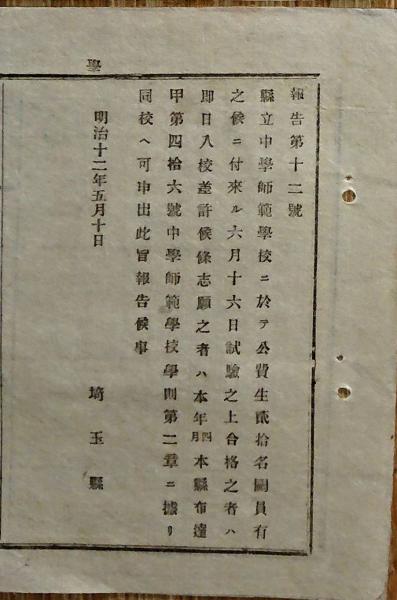 學
報告第十二號
縣立中學師範學校ニ於テ公費生貳拾名闕員有
之候ニ付來ル六月十六日試驗之上合格之者ハ
即日入校差許候條志願之者ハ本年四月本縣布達
甲第四拾六號中學師範學校學則第二章ニ據リ
同校ヘ可申出此旨報告候事
明治十二年五月十日
埼玉縣